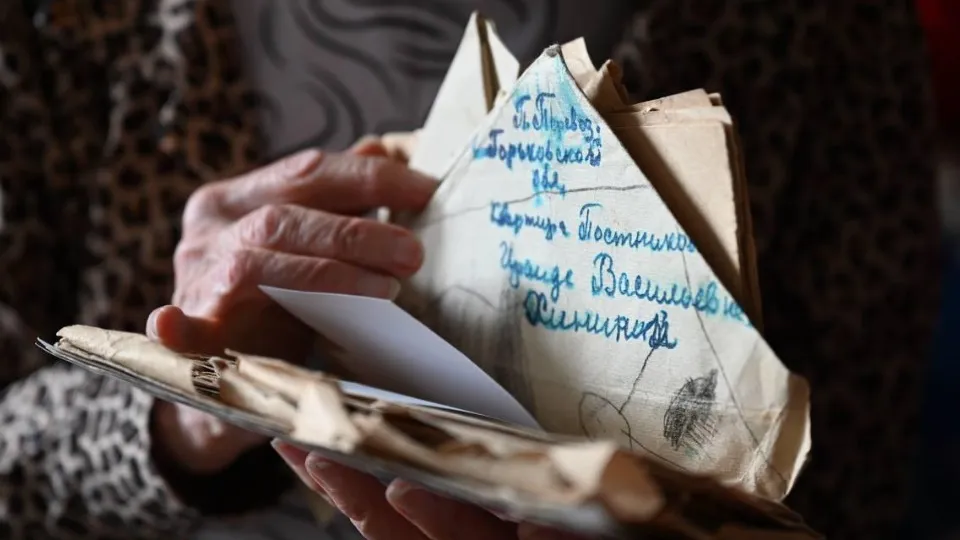 П. Перевоз,
Горьковской
обл,
Квартира Постников
Ираиде Васильевне
Хининой